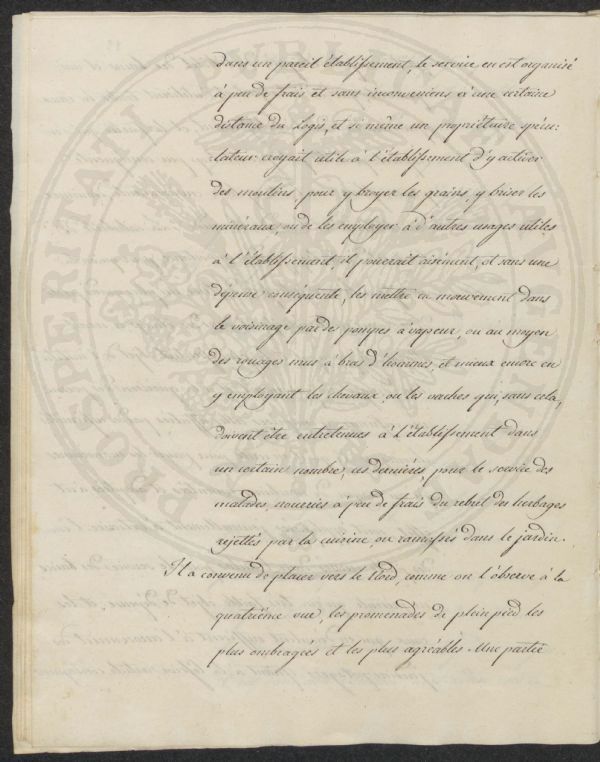 dans un pareil établissement, le service en est organisé
à peu de frais et sans inconveniens à une certaine
distance du Logis, et si même un propriétaire spécu-
lateur croyait utile à l'établissement d'y activer
des moulins pour y broyer les grains, y briser les
minéraux, ou de les employer à d'autres usages utiles
à l'établissement, il pourrait aisément, et sans une
dépense conséquente, les mettre en mouvement dans
le voisinage par des pompes à vapeur, ou au moyen
des rouages mus à bras d'hommes, et mieux encore en
y employant les chevaux ou les vaches qui, sans cela,
doivent être entretenues à l'établissement dans
un certain nombre, ces dernières, pour le service des
malades, nourries à peu de frais du rebut des herbages
rejettés par la cuisine, ou ramassés dans le jardin.
Il a convenu de placer vers le Nord, comme on l'observe à la
quatrième vue, les promenades de plein pied les
plus ombragées et les plus agréables. Une partie